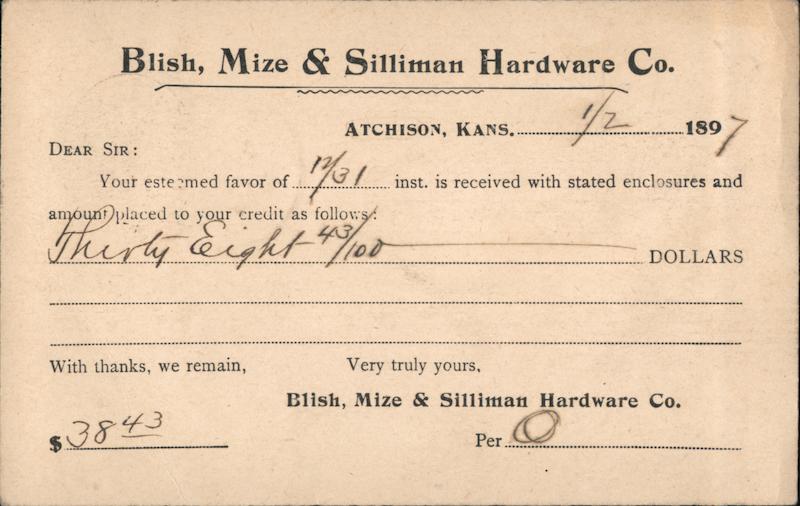 Blish, Mize & Silliman Hardware Co.
ATCHISON, KANS. 1/2 1897
DEAR SIR:
Your esteemed favor of 12/31 inst. is received with stated enclosures and
amount placed to your credit as follows:
Thirty Eight 43/100 DOLLARS
With thanks, we remain, Very truly yours,
Blish, Mize & Silliman Hardware Co.
$ 38 43 Per O